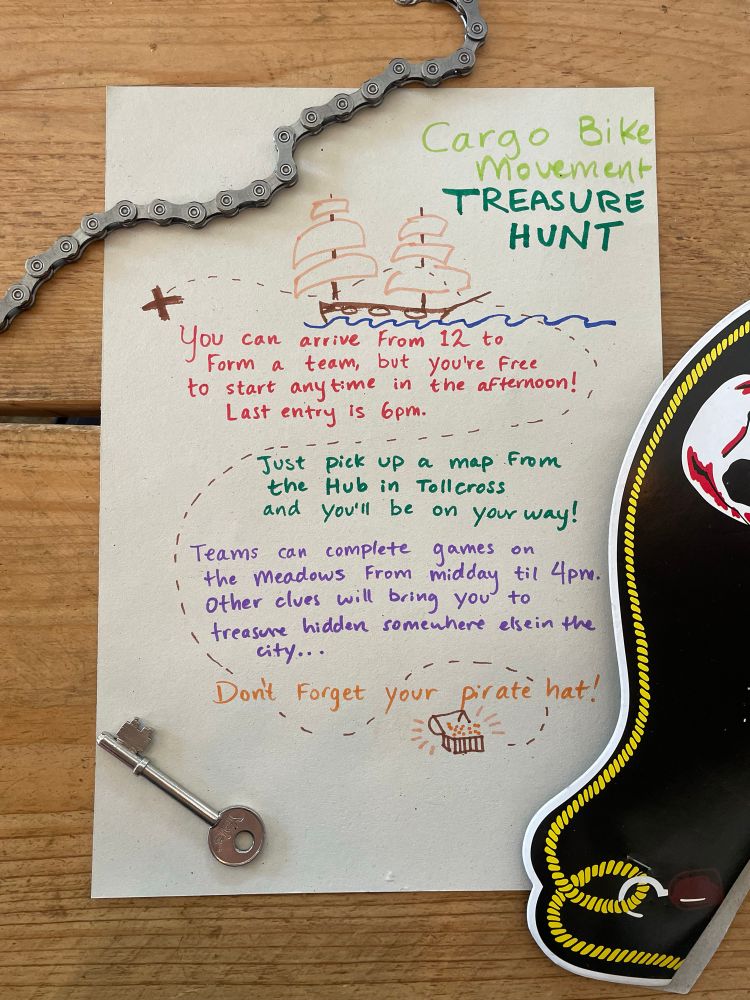 Cargo Bike
Movement
TREASURE
HUNT
You can arrive from 12 to
form a team, but you're free
to start anytime in the afternoon!
Last entry is 6pm.
Just pick up a map from
the Hub in Tollcross
and you'll be on your way!
Teams can complete games on
the Meadows from midday til 4pm.
Other clues will bring you to
treasure hidden somewhere elsein the
city...
Don't forget your pirate hat!